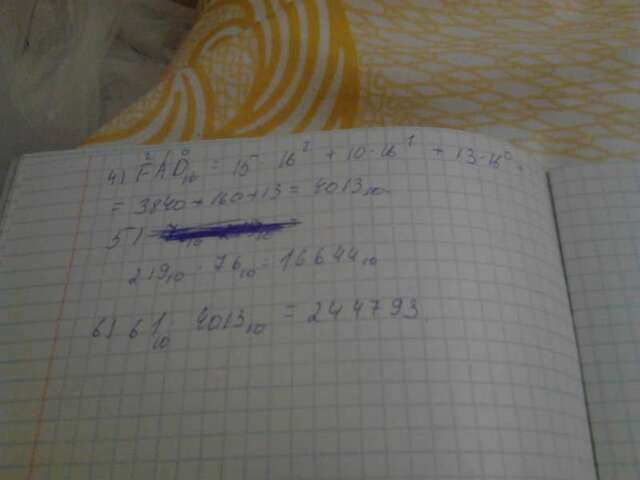 4) FAD₁₀ = 15 · 16² + 10 · 16¹ + 13 · 16⁰ =
= 3840 + 160 + 13 = 4013₁₀
5)
219₁₀ · 76₁₀ = 16644₁₀
6) 61₁₀ · 4013₁₀ = 244793